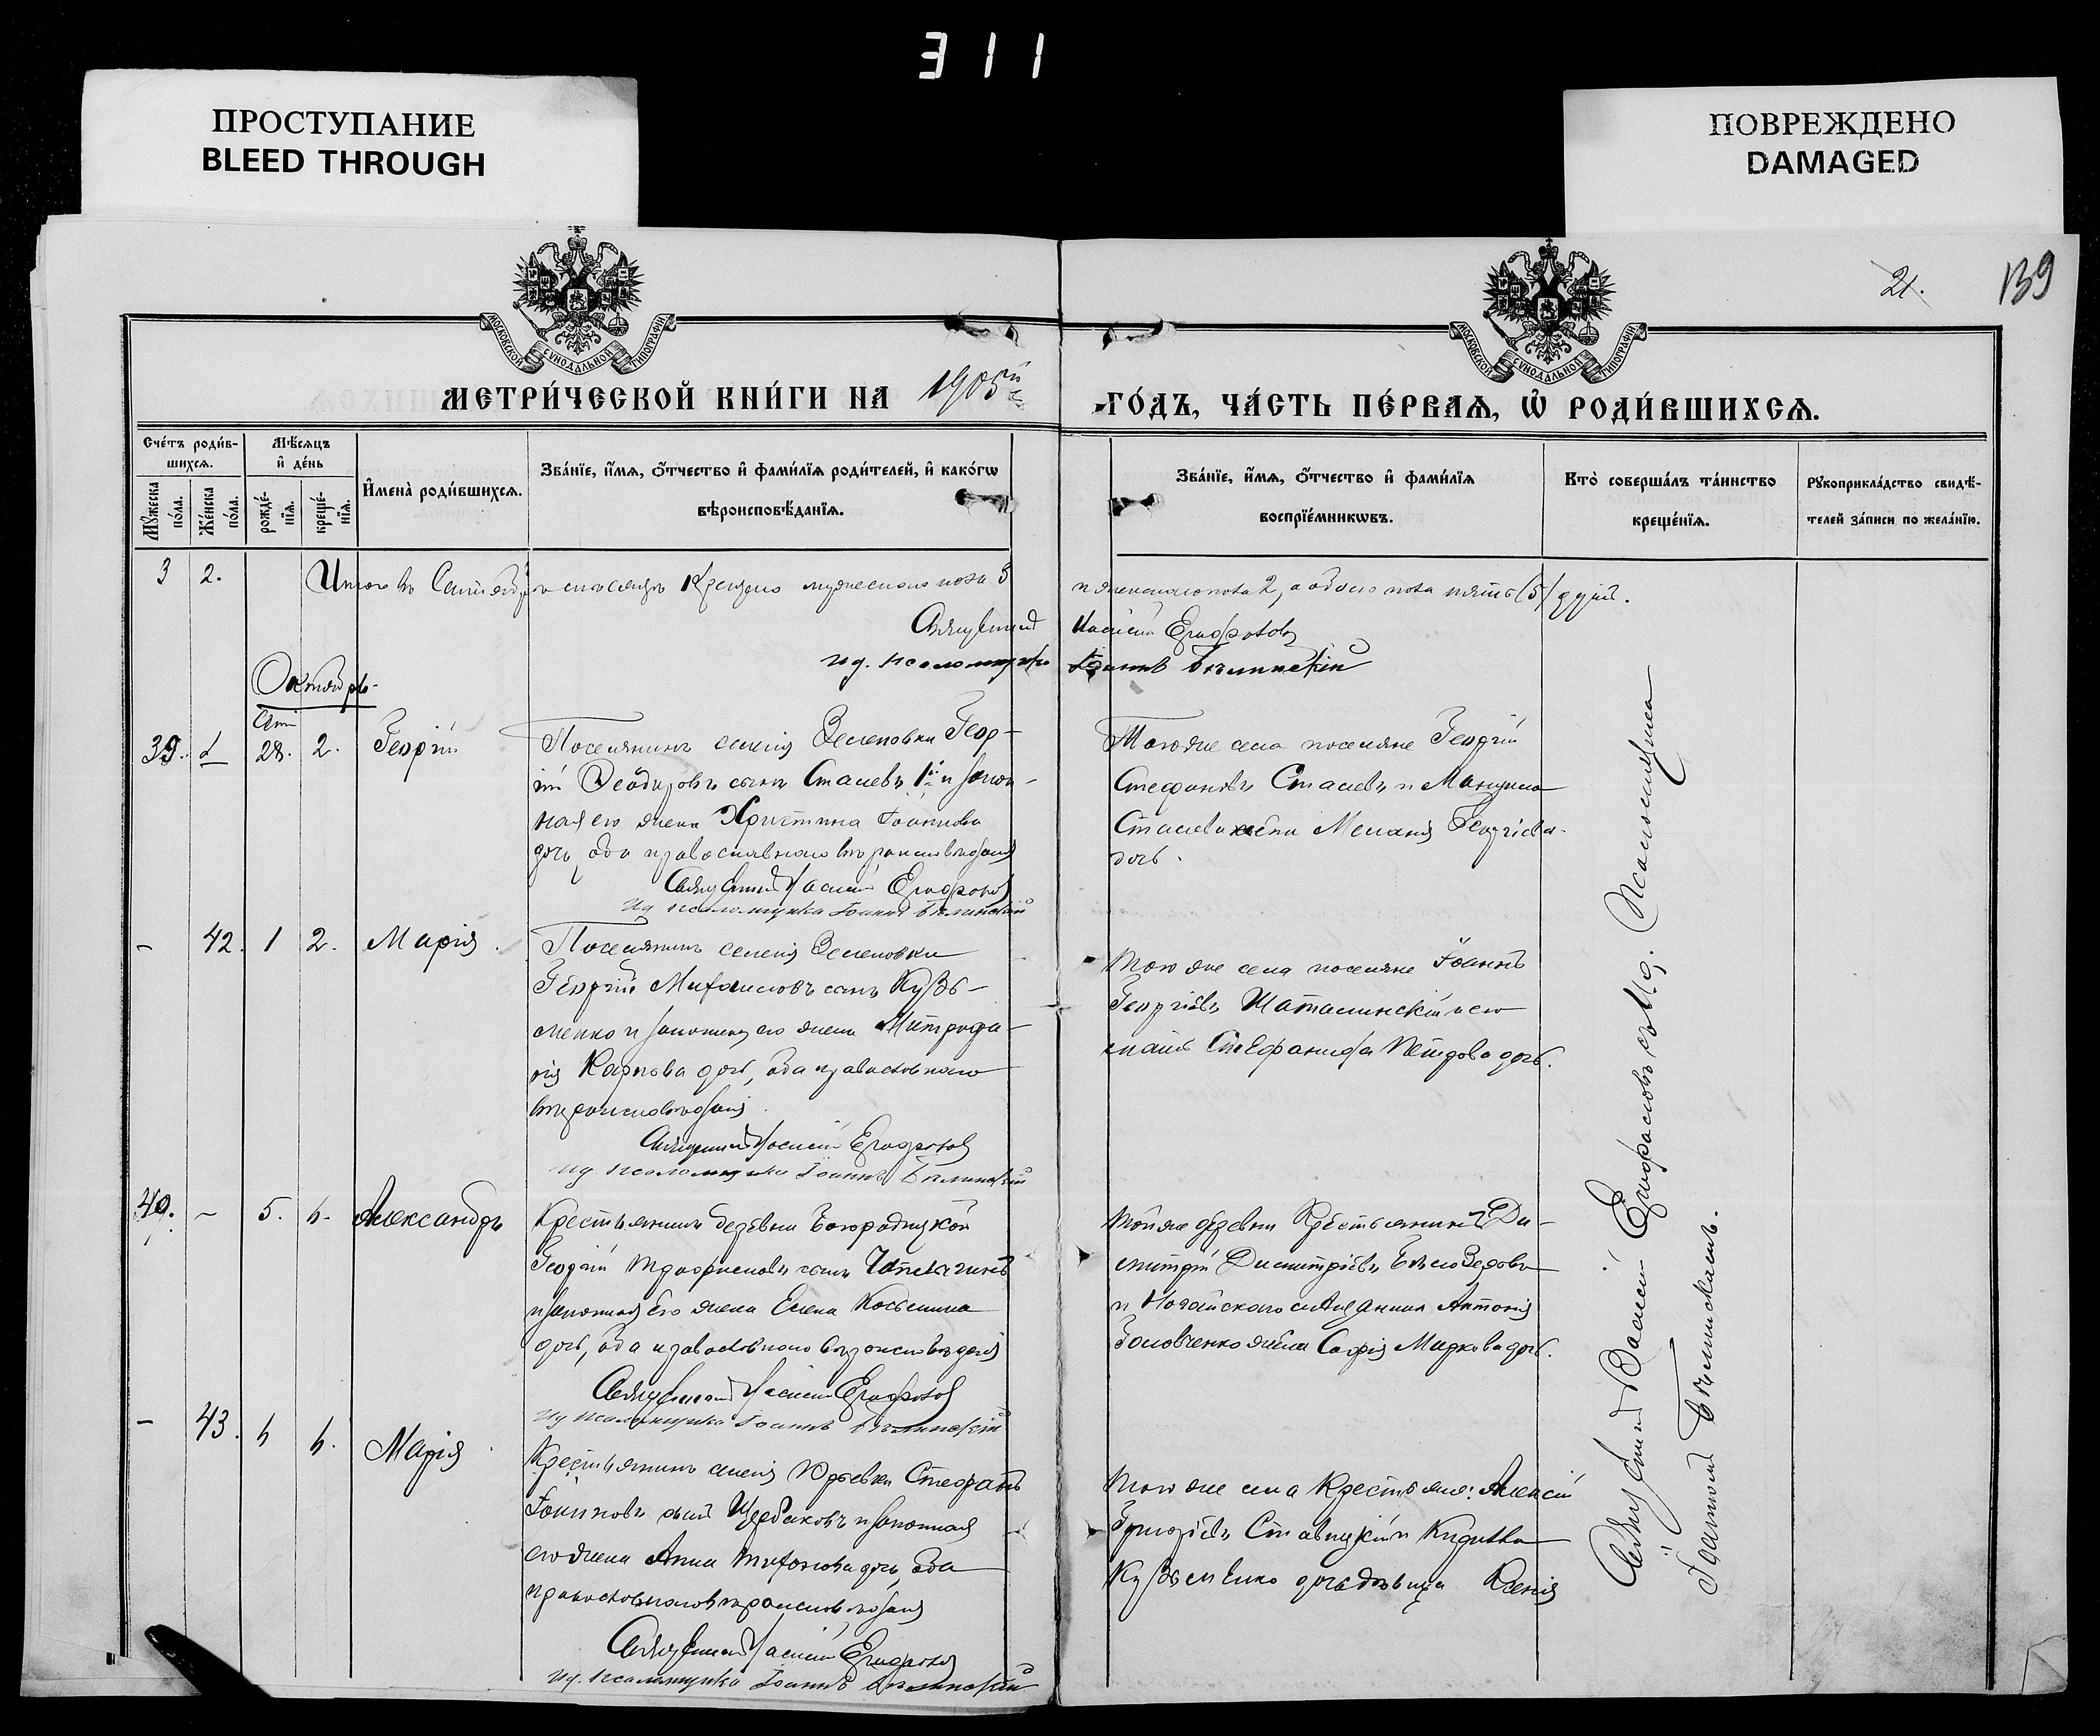 311
ПРОСТУПАНИЕ
BLEED THROUGH
ПОВРЕЖДЕНО
DAMAGED
21.
139
МОСКОВСКОЙ СѴНОДАЛЬНОЙ ТИПОГРАФІИ
МОСКОВСКОЙ СѴНОДАЛЬНОЙ ТИПОГРАФІИ
МЕТРИ́ЧЕСКОЙ КНИ́ГИ НА 1905й
ГО́ДЪ, ЧА́СТЬ ПЕ́РВАЯ, Ѡ҆ РОДИ́ВШИХСЯ.
Сче́тъ роди́в-
шихся.
Мѣ́сяцъ
и҆ де́нь
Мꙋ́жеска по́ла.
Же́нска по́ла.
рожде́-
нїя.
креще́-
нїя.
И҆мена̀ роди́вшихся.
Зва́нїе, и҆́мя, ѻ҆́тчество и҆ фами́лїя роди́телей, и҆ како́гѡ
вѣроисповѣ́данїя.
Зва́нїе, и҆́мя, ѻ҆́тчество и҆ фами́лїя
воспрїе́мникѡвъ.
Кто̀ соверша́лъ та́инство
креще́нїя.
Рꙋкоприкла́дство свидѣ́-
телей за́писи по жела́нїю.
3 2. Итого въ Сентябрѣ мѣсяцѣ крещено мужескаго пола 3
и женскаго пола 2, а обоего пола пять (5) душъ.
Священникъ Василій Епифановъ
и д. псаломщика Іоаннъ Бѣлинскій
Октябрь.
39. 28. 2. Георгій
Поселянинъ селенія Зеленовки Геор-
гій Ѳеодоровъ сынъ Стасевъ 1й и закон-
ная его жена Христина Іоаннова
дочь, оба православнаго вѣроисповѣданія
Священникъ Василій Епифановъ
И д псаломщика Іоаннъ Бѣлинскій
Того же села поселяне Георгій
Стефановъ Стасевъ и
Стасева жена Меланія Георгіева
дочь.
- 42. 1 2. Марія.
Поселянинъ селенія Зеленовки
Георгій Михаиловъ сынъ Кузь-
менко и законная его жена Митродо-
рія Карпова дочь, оба православнаго
вѣроисповѣданія.
Священникъ Василій Епифановъ
И д. псаломщика Іоаннъ Бѣлинскій
Того же села поселяне Іоаннъ
Георгіевъ Шаталинскій и его
мать Стефанида Петрова дочь.
40. - 5. 6. Александръ
Крестьянинъ деревни Богородицкой
Георгій Трофимовъ сынъ
и законная его жена Елена Косьмина
дочь, оба православнаго вѣроисповѣданія
Священникъ Василій Епифановъ
И д псаломщика Іоаннъ Бѣлинскій
Той же деревни Крестьянинъ Ди-
митрій Димитріевъ Бѣлозеровъ
и Ногайского мѣщанина Антонія
Головченко жена Софія Маркова дочь.
- 43. 6 6. Марія
Крестьянинъ селенія Юрьевки Стефанъ
Іоанновъ сынъ Щербаковъ и законная
его жена Анна Тихонова дочь, оба
православнаго вѣроисповѣданія
Священникъ Василій Епифановъ
И д. псаломщика Іоаннъ Бѣлинскій
Того же села Крестьяне: Алексій
Григоріевъ Ставицкій и
Кузьменко дочь дѣвица Ксенія
Священникъ Василій Епифановъ съ И. д. Псаломщика
Іоанномъ Бѣлинскимъ.